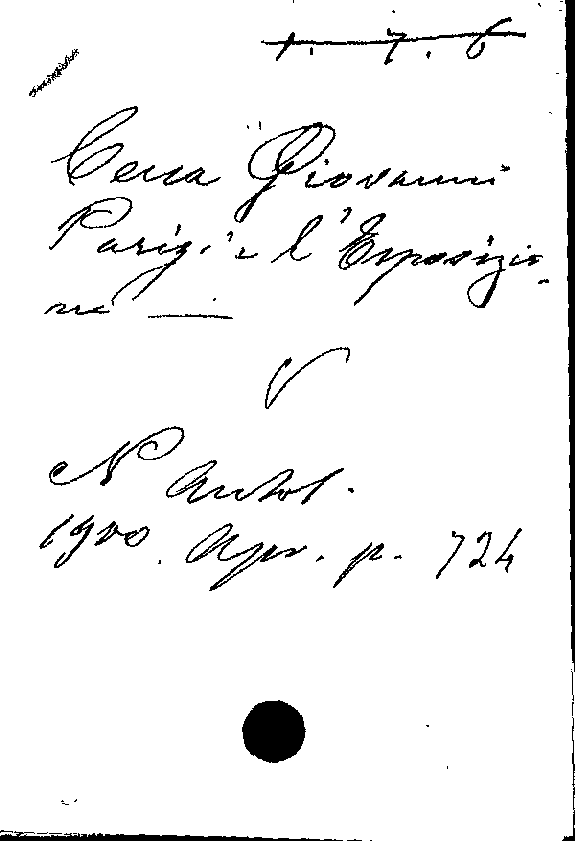 1. 7. 6
Cena Giovanni
Parigi e l'Esposizio-
ne
V
N Antol.
1900. Apr. p. 724